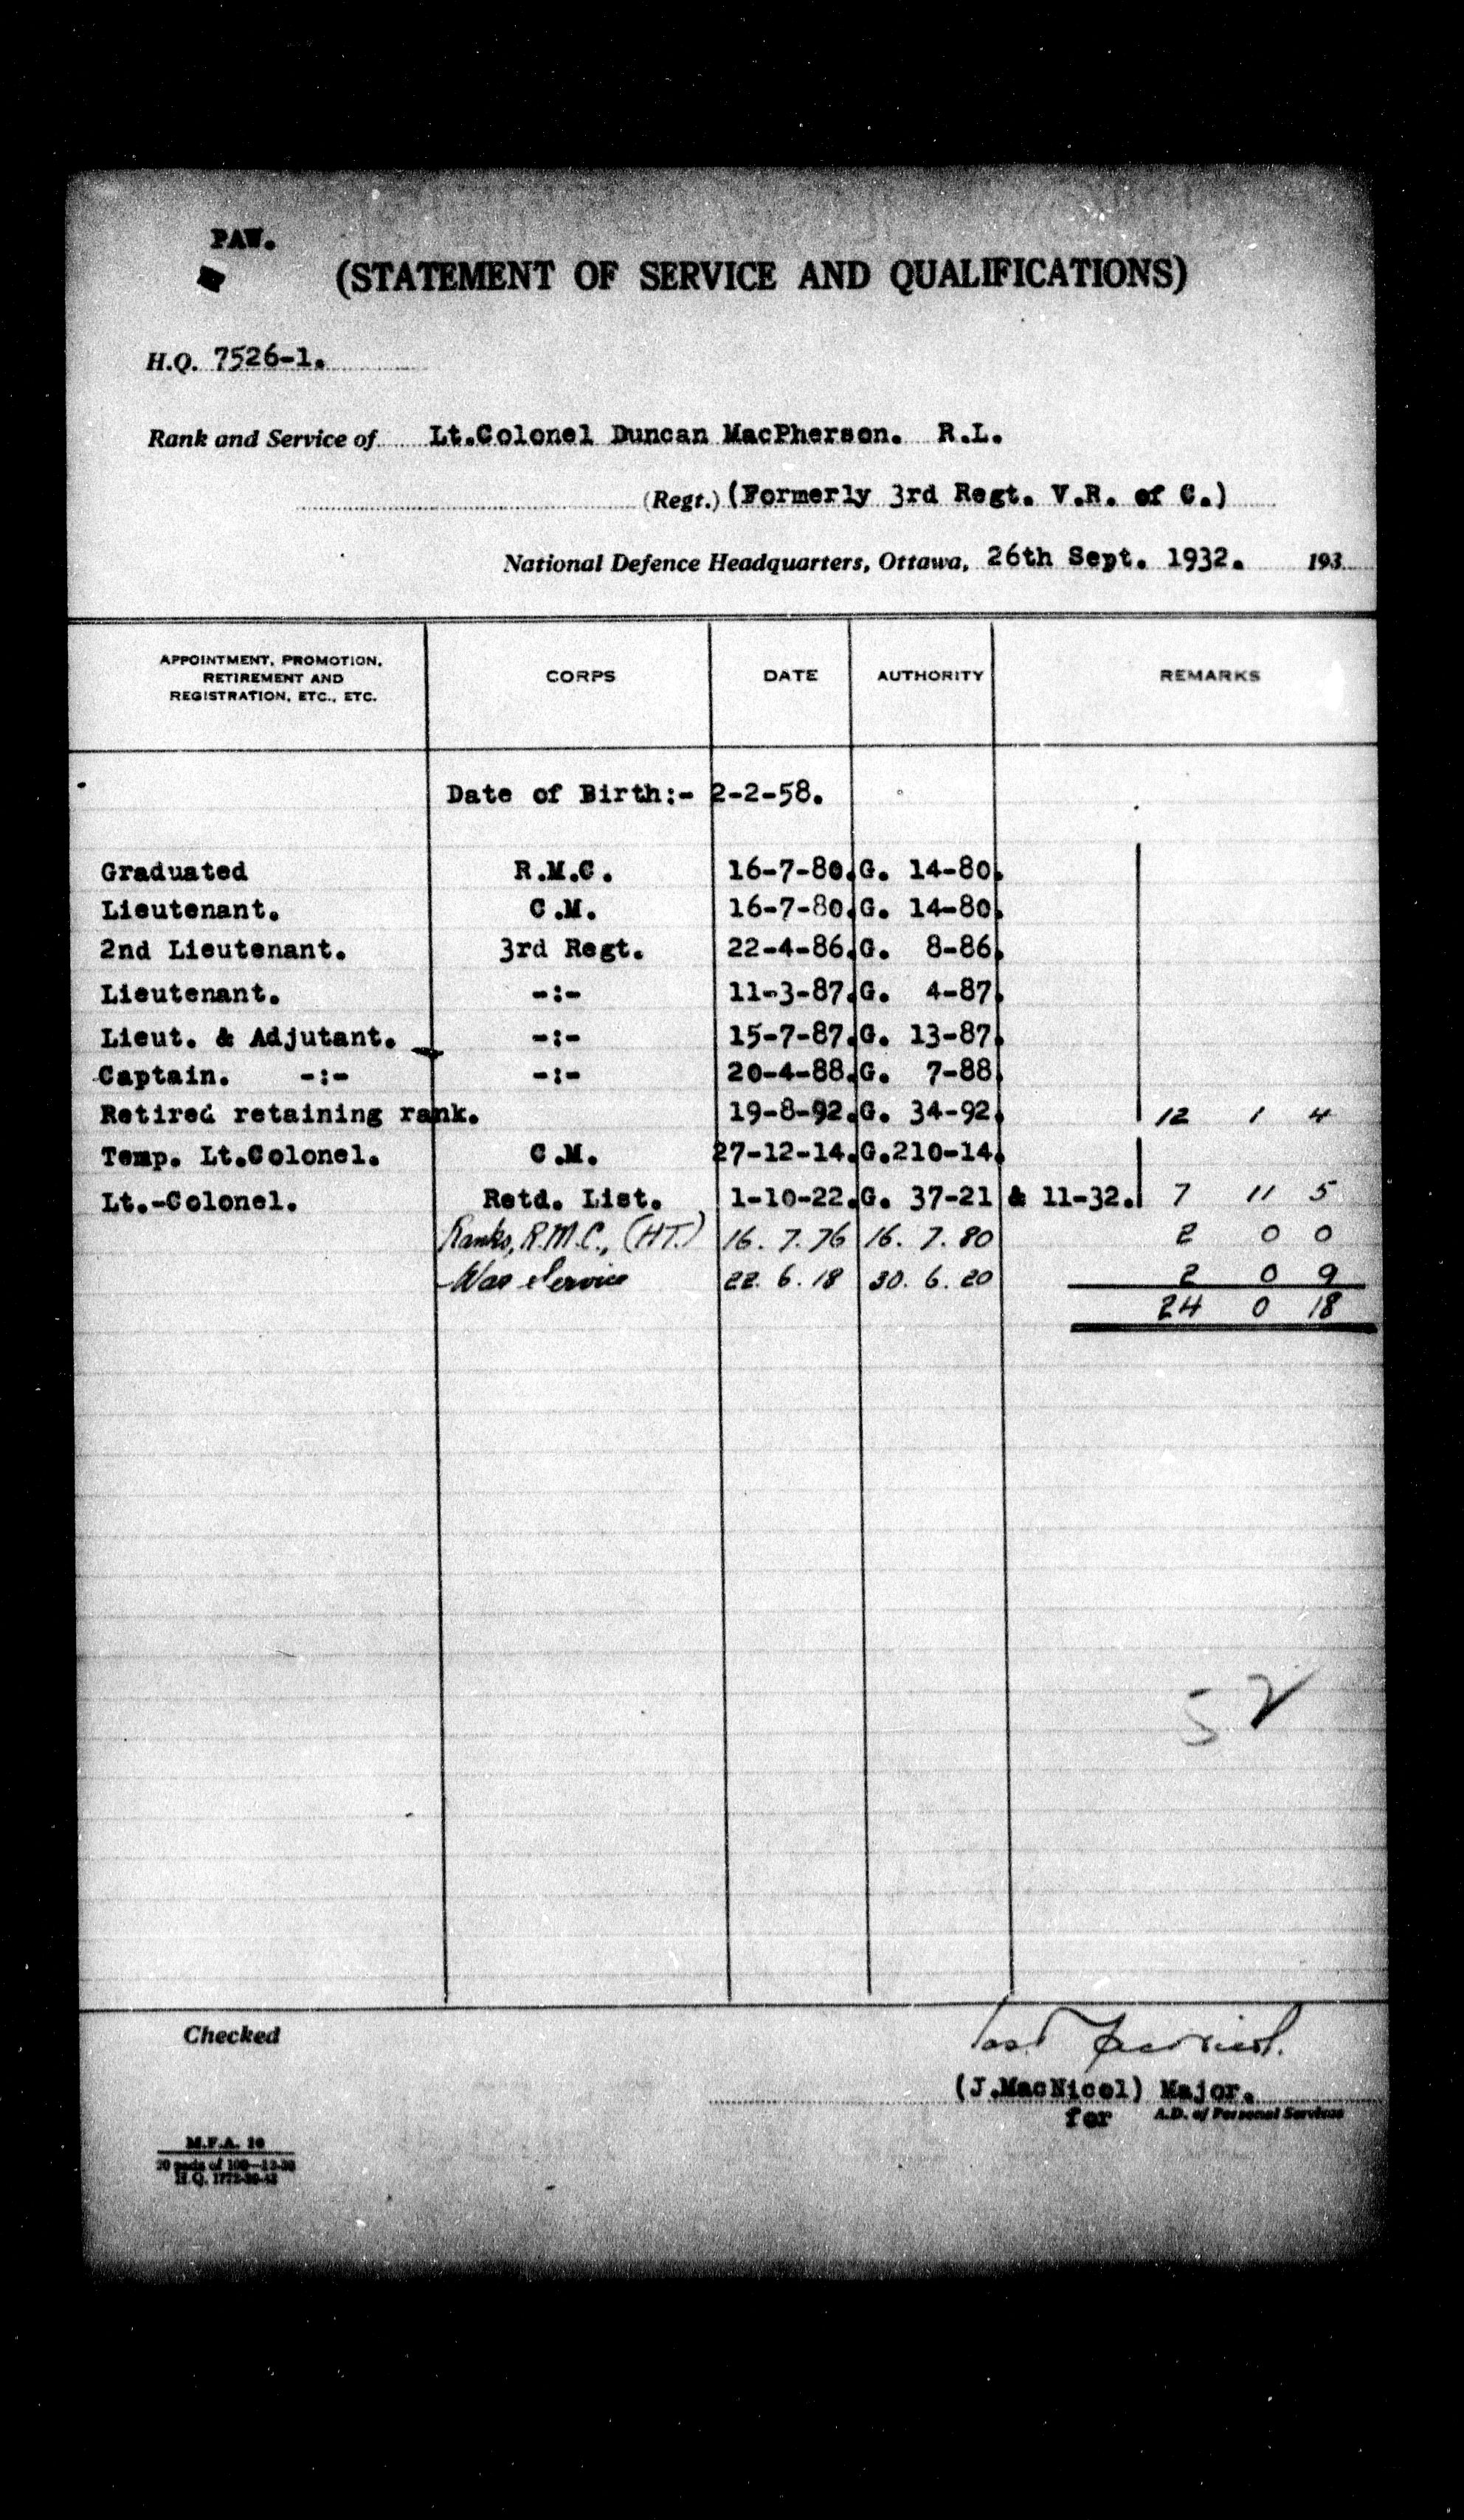 PAW.
(STATEMENT OF SERVICE AND QUALIFICATIONS)
H.Q. 7526-1.
Rank and Service of Lt.Colonel Duncan MacPherson. R.L.
(Regt.) (Formerly 3rd Regt. V.R. of C.)
National Defence Headquarters, Ottawa, 26th Sept. 1932. 193
APPOINTMENT, PROMOTION, RETIREMENT AND REGISTRATION, ETC., ETC. CORPS DATE AUTHORITY REMARKS
Date of Birth:- 2-2-58.
Graduated R.M.C. 16-7-80. G. 14-80.
Lieutenant. C.M. 16-7-80. G. 14-80.
2nd Lieutenant. 3rd Regt. 22-4-86. G. 8-86.
Lieutenant. -:- 11-3-87. G. 4-87.
Lieut. & Adjutant. -:- 15-7-87. G. 13-87.
Captain. -:- -:- 20-4-88. G. 7-88.
Retired retaining rank. 19-8-92. G. 34-92. 12 1 4
Temp. Lt.Colonel. C.M. 27-12-14. G.210-14.
Lt.-Colonel. Retd. List. 1-10-22. G. 37-21 & 11-32. 7 11 5
Ranks, R.M.C., (HT.) 16. 7. 76 16. 7. 80 2 0 0
War Service 22. 6. 18 30. 6. 20 2 0 9
24 0 18
52
Checked
(J.MacNicol) Major.
for A.D. of Personal Services
M.F.A. 10
20 pads of 100
H.Q. 1772-39-43